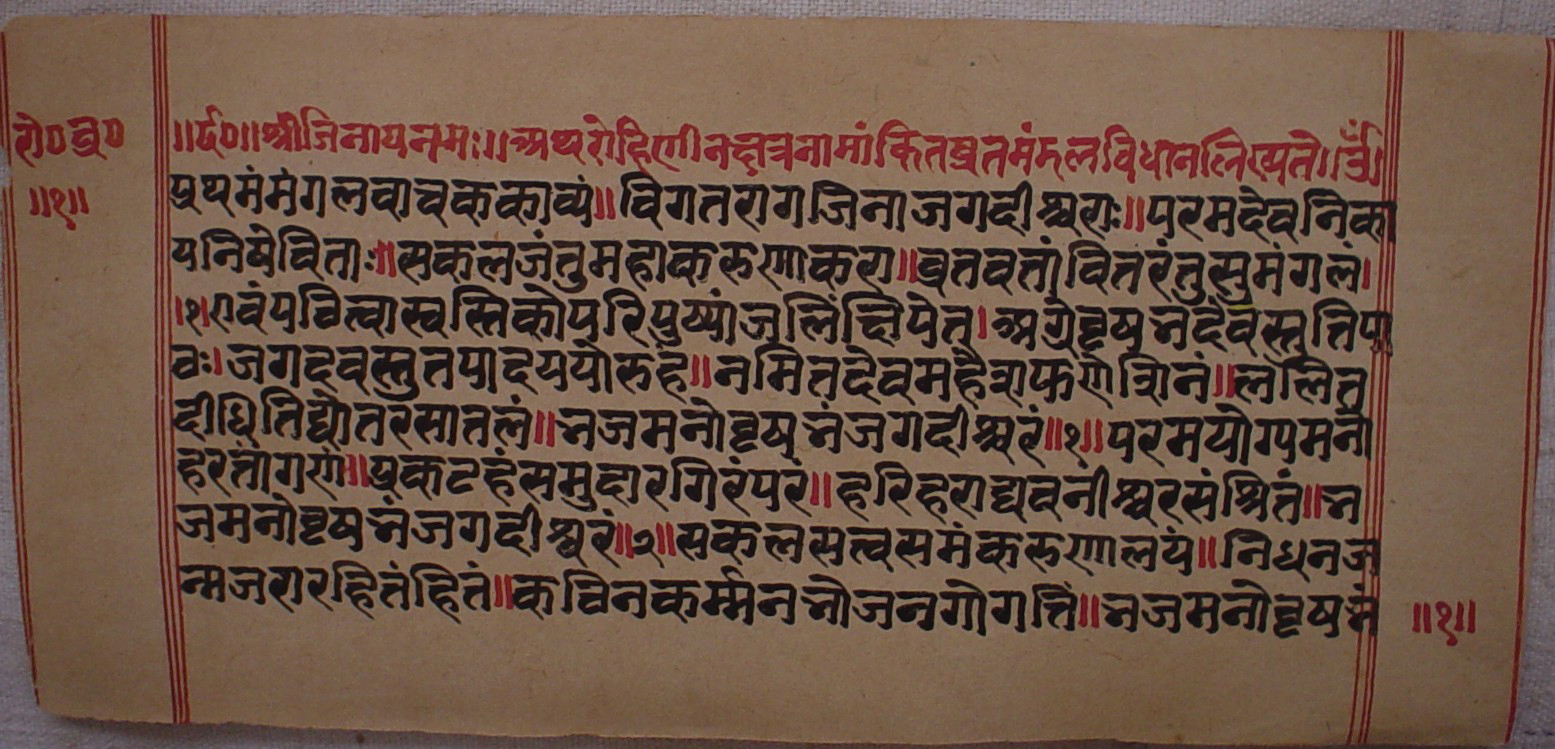 रो०व्र०
॥१॥
॥र्द०॥श्रीजिनायनमः॥अथरोहिणीनक्षत्रनामांकितव्रतमंडलविधानलिख्यते॥
प्रथमंमंगलवाचककाव्यं॥विगतरागजिनाजगदीश्वराः॥परमदेवनिका
यनिषेविताः॥सकलजंतुमहाकरुणाकरा॥व्रतवतांवितरंतुसुमंगलं।
।१।एवंपवित्वास्वस्तिकोपरिपुष्पांजलिंक्षिपेत्।अग्रेवृषभदेवस्तुति
वः।जगदवस्तुतपादपयोरुहं॥नमितदेवमहै॥ललित
दीधितिद्योतरसातलं॥भजमनोवृषभंजगदीश्वरं॥१॥परमयोग्यमनो
हरतांगणं॥प्रकटहंसमुदारगिरंपरं॥हरिहराद्यवनीश्वरसंश्रितं॥भ
जमनोवृषभंजगदीश्वरं॥२॥सकलसत्वसमंकरुणालयं॥निधनज
न्मजरारहितंहितं॥कविनकर्म्मनभोजनगोगत्तिं॥भजमनोवृषभं
॥१॥